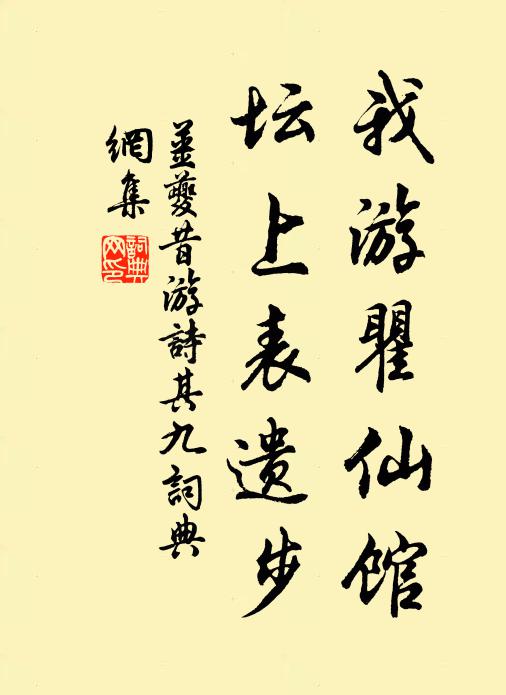 我游瞿仙馆
坛上表遗步
姜夔昔游詩其九詞典
網集
詞典網印